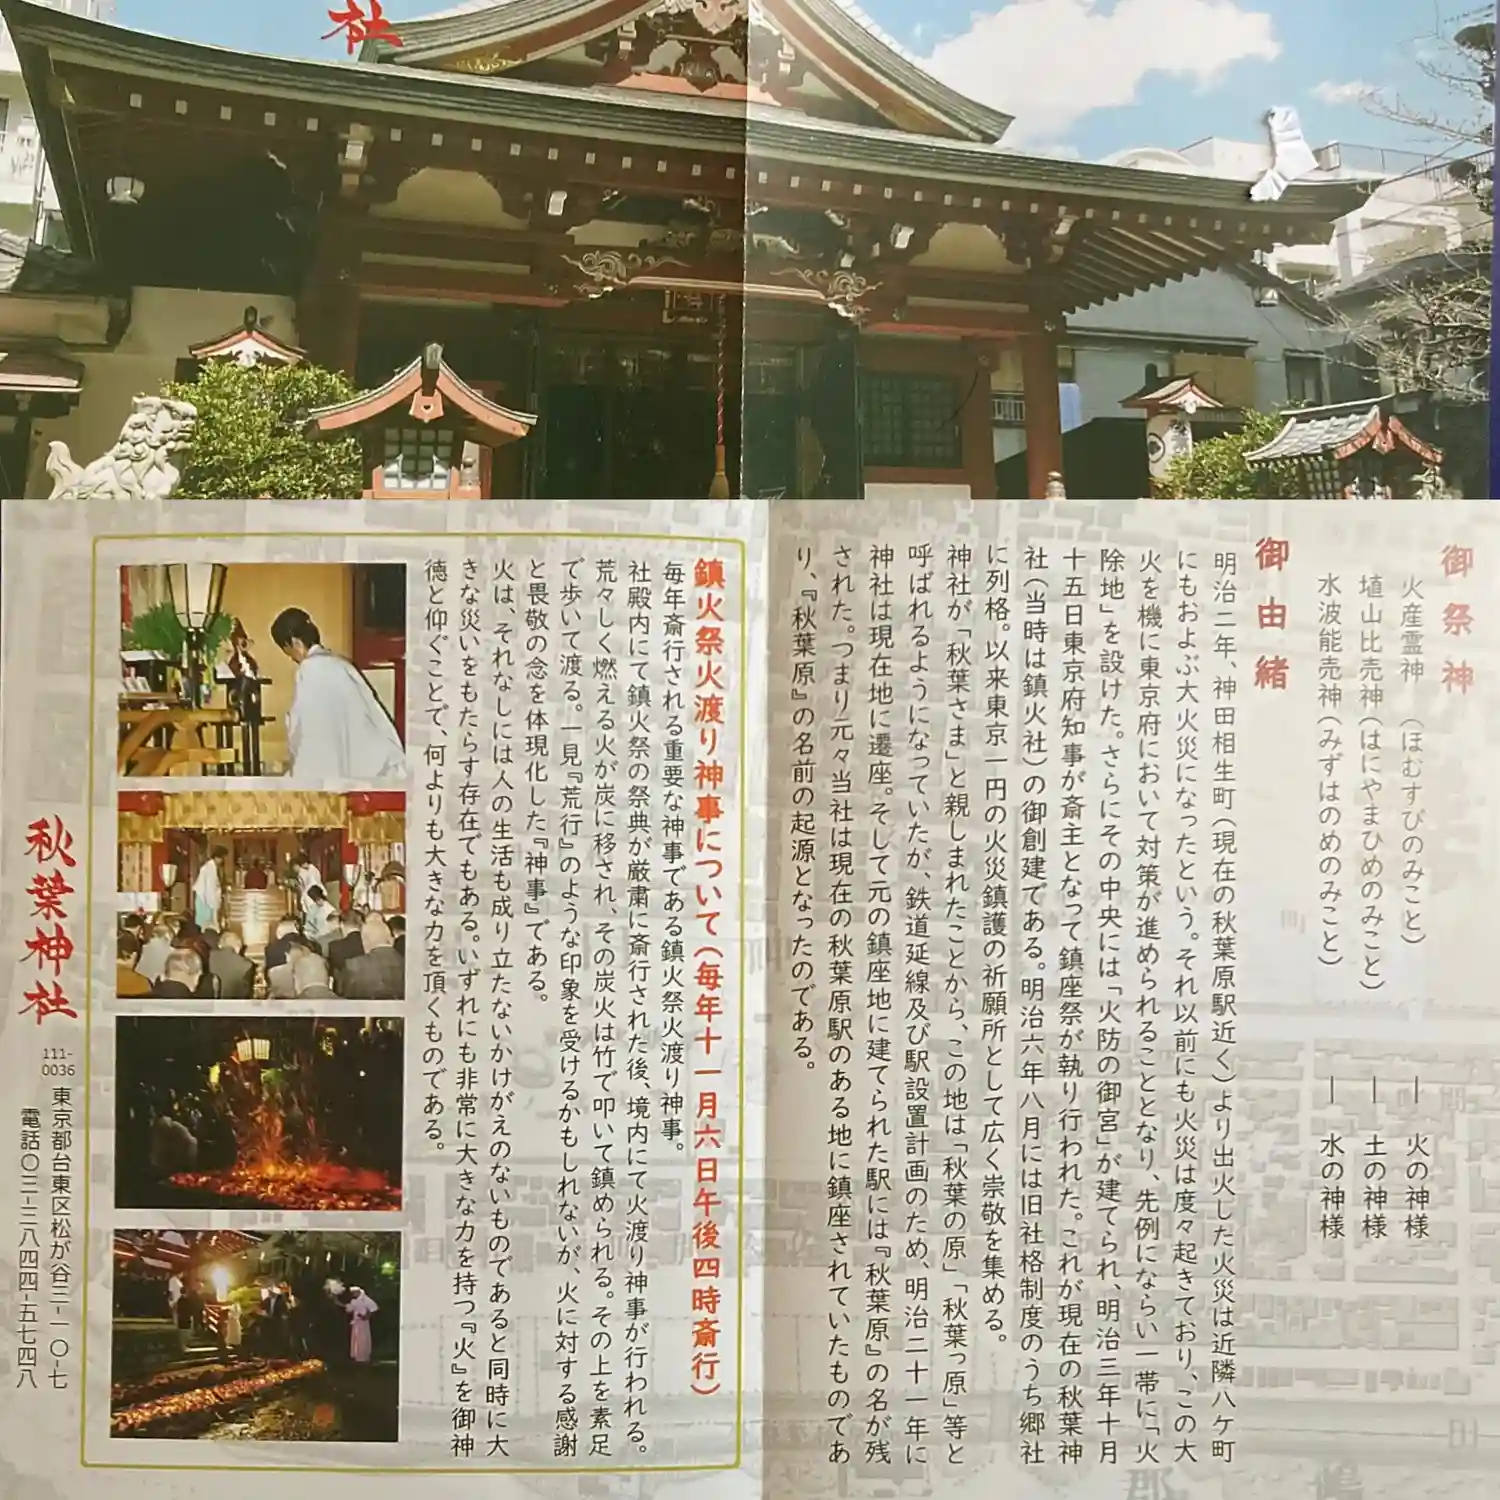 社
御祭神
火産霊神 (ほむすびのみこと) ― 火の神様
埴山比売神(はにやまひめのみこと) ― 土の神様
水波能売神(みずはのめのみこと) ― 水の神様
御由緒
明治二年、神田相生町(現在の秋葉原駅近く)より出火した火災は近隣八ケ町
にもおよぶ大火災になったという。それ以前にも火災は度々起きており、この大
火を機に東京府において対策が進められることとなり、先例にならい一帯に「火
除地」を設けた。さらにその中央には「火防の御宮」が建てられ、明治三年十月
十五日東京府知事が斎主となって鎮座祭が執り行われた。これが現在の秋葉神
社(当時は鎮火社)の御創建である。明治六年八月には旧社格制度のうち郷社
に列格。以来東京一円の火災鎮護の祈願所として広く崇敬を集める。
神社が「秋葉さま」と親しまれたことから、この地は「秋葉の原」「秋葉っ原」等と
呼ばれるようになっていたが、鉄道延線及び駅設置計画のため、明治二十一年に
神社は現在地に遷座。そして元の鎮座地に建てられた駅には『秋葉原』の名が残
された。つまり元々当社は現在の秋葉原駅のある地に鎮座されていたものであ
り、『秋葉原』の名前の起源となったのである。
鎮火祭火渡り神事について(毎年十一月六日午後四時斎行)
毎年斎行される重要な神事である鎮火祭火渡り神事。
社殿内にて鎮火祭の祭典が厳粛に斎行された後、境内にて火渡り神事が行われる。
荒々しく燃える火が炭に移され、その炭火は竹で叩いて鎮められる。その上を素足
で歩いて渡る。一見『荒行』のような印象を受けるかもしれないが、火に対する感謝
と畏敬の念を体現化した『神事』である。
火は、それなしには人の生活も成り立たないかけがえのないものであると同時に大
きな災いをもたらす存在でもある。いずれにも非常に大きな力を持つ『火』を御神
徳と仰ぐことで、何よりも大きな力を頂くものである。
秋葉神社
111-0036 東京都台東区松が谷三-一〇-七
電話〇三-三八四四-五七四八